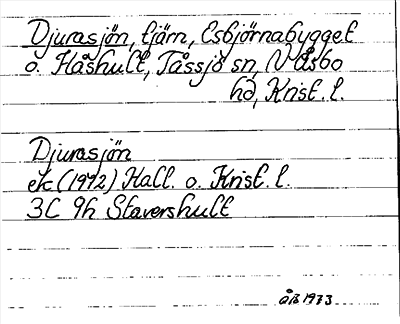 Djurasjön, tjärn, Esbjörnabygget
o. Håshult, Tåssjö sn, N Åsbo
hd, Krist. l.
Djurasjön
ek (1972) Hall. o. Krist. l.
3C 9h Stavershult
ÅB 1973